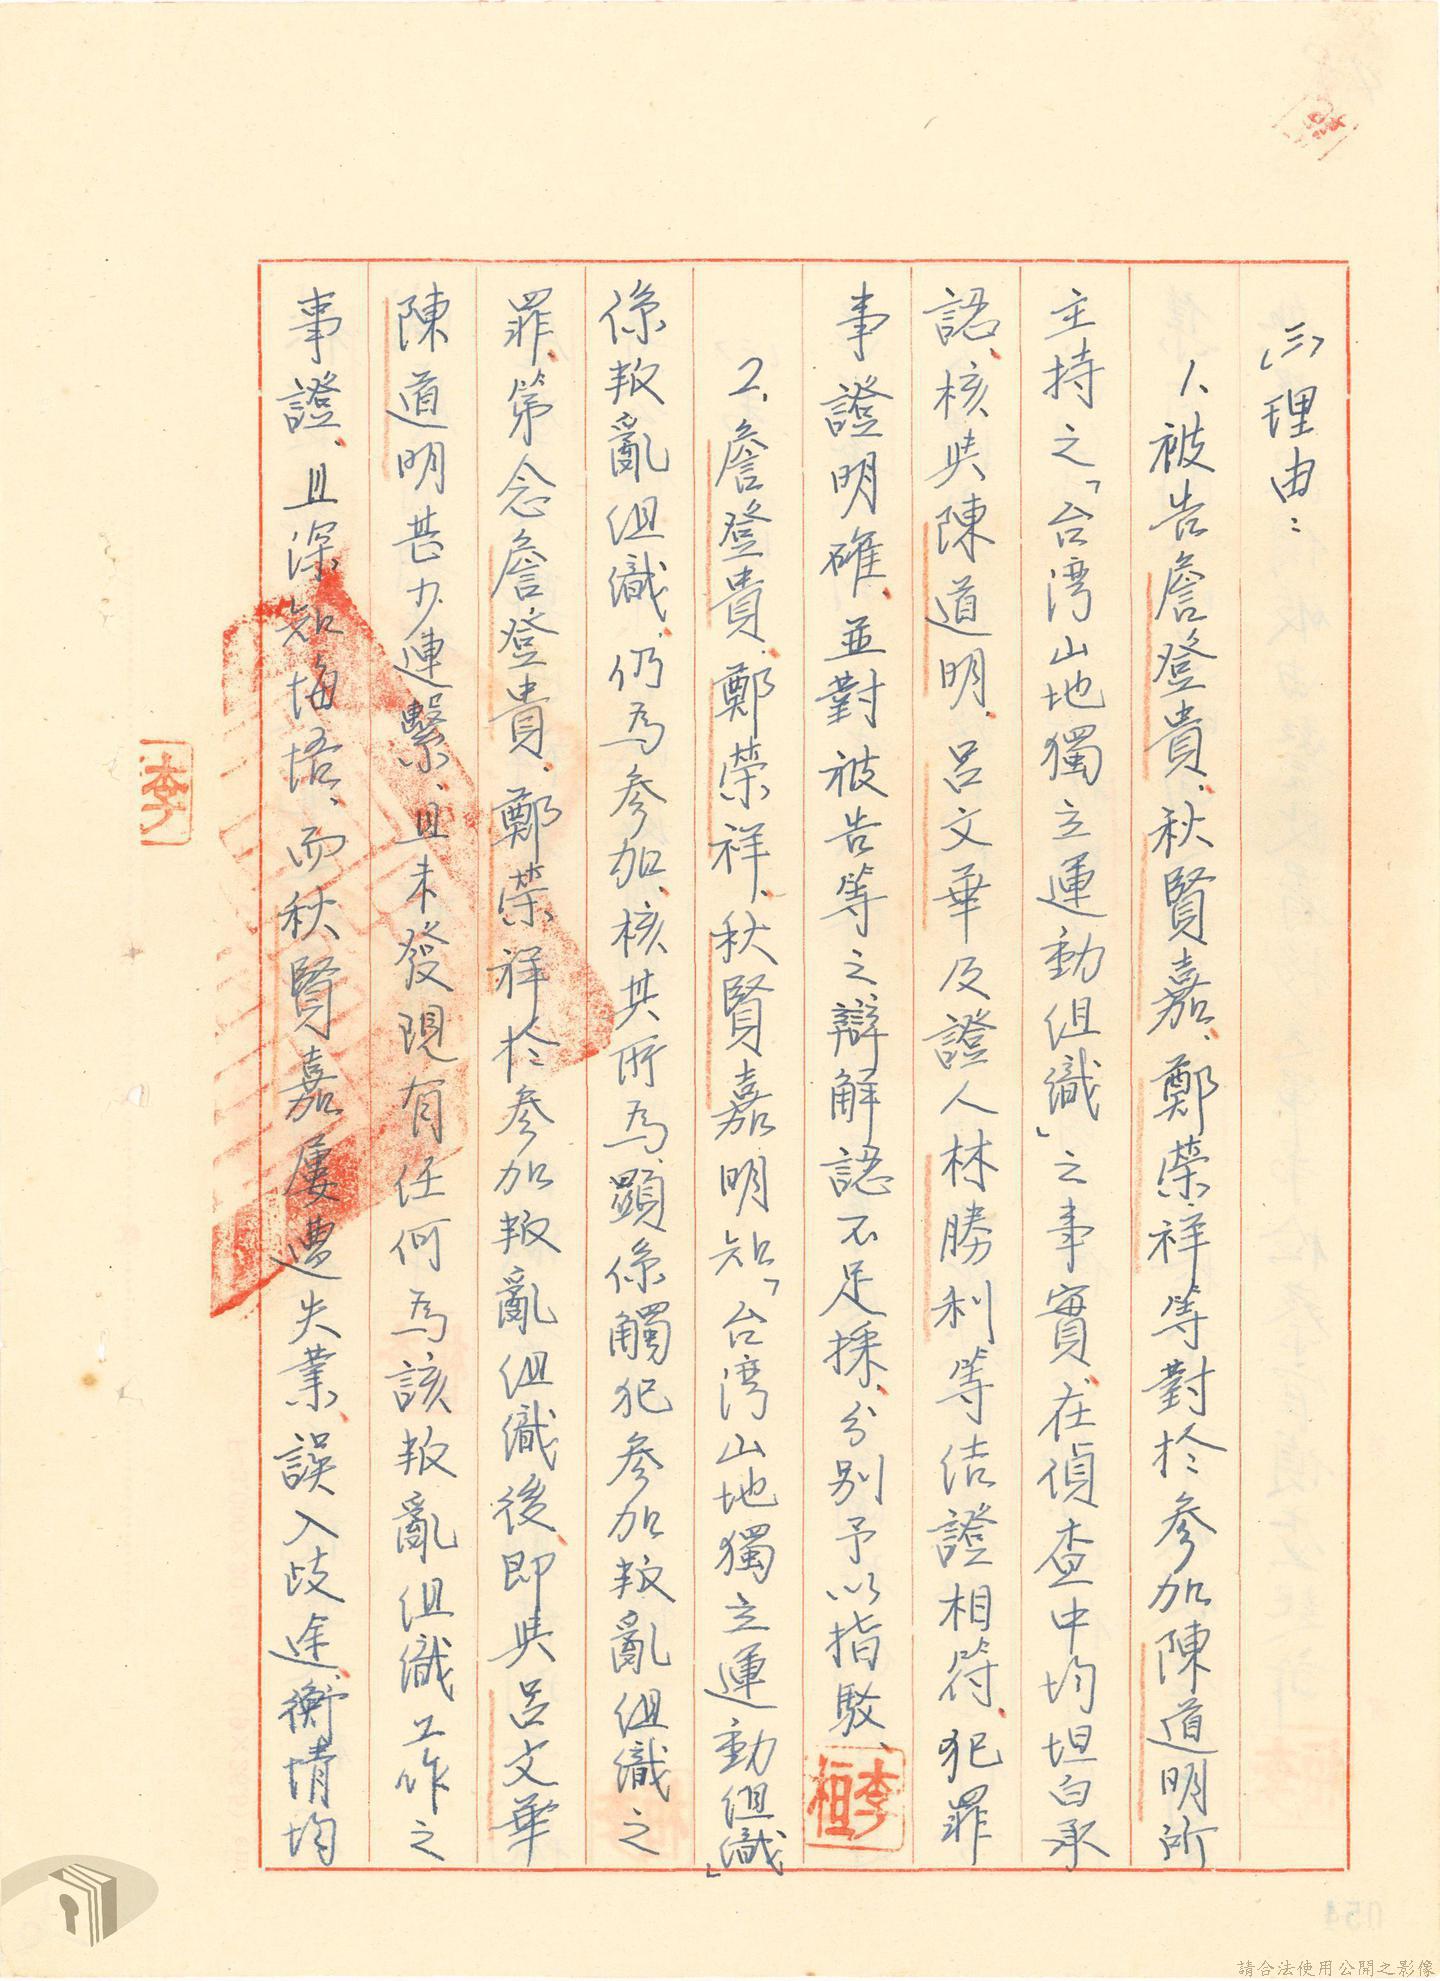 ㈢理由：
1.被告詹登貴、秋賢嘉、鄭榮祥等對於參加陳道明所
主持之「台湾山地獨立運動組織」之事實、在偵查中均坦白承
認、核與陳道明、呂文華及證人林勝利等結證相符、犯罪
事證明確、並對被告等之辯解認不足採、分別予以指駁、
2.詹登貴、鄭榮祥、秋賢嘉明知「台湾山地獨立運動組織」
係叛亂組織、仍為參加、核其所為、顯係觸犯參加叛亂組織之
罪、第念詹登貴、鄭榮祥於參加叛亂組織後、即與呂文華
陳道明甚少連繫、且未發現有任何為該叛亂組織工作之
事證、且深知悔悟、而秋賢嘉屢遭失業、誤入歧途、衡情均
李
李桓
請合法使用公開之影像